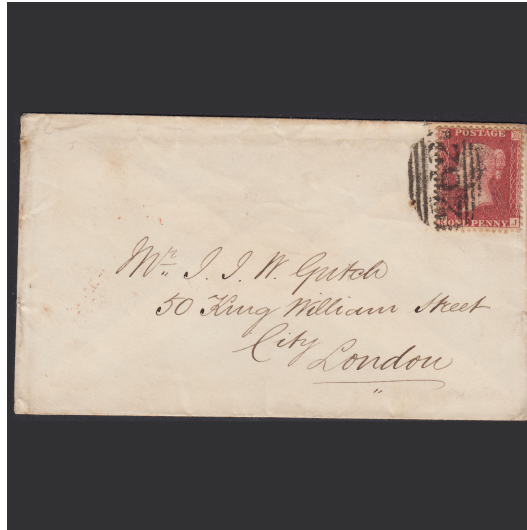 POSTAGE
ONE PENNY
J
Mr. J. J. W. Gutch
50 King William Street
City
London